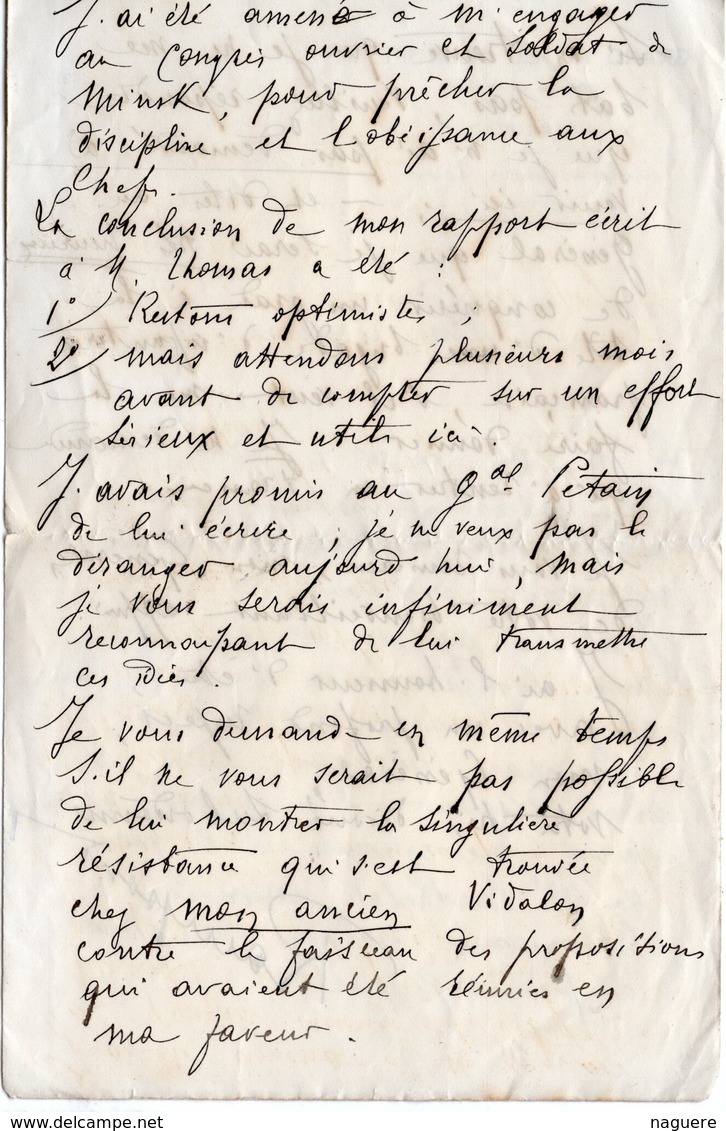 J'ai été amené à m'engager
au Congrès ouvrier et soldat de
Minsk, pour prêcher la
discipline et l'obéissance aux
Chefs.
La conclusion de mon rapport écrit
à M. Thomas a été :
1º/ Restons optimistes ;
2º/ mais attendons plusieurs mois
avant de compter sur un effort
sérieux et utile ici.
J'avais promis au Gal Pétain
de lui écrire ; je ne veux pas le
déranger aujourd'hui, mais
je vous serais infiniment
reconnaissant de lui transmettre
ces idées.
Je vous demande en même temps
s'il ne vous serait pas possible
de lui montrer la singulière
résistance qui s'est trouvée
chez mon ancien Vidalon
contre le faisceau des propositions
qui avaient été réunies en
ma faveur.
delcampe.net
naguere